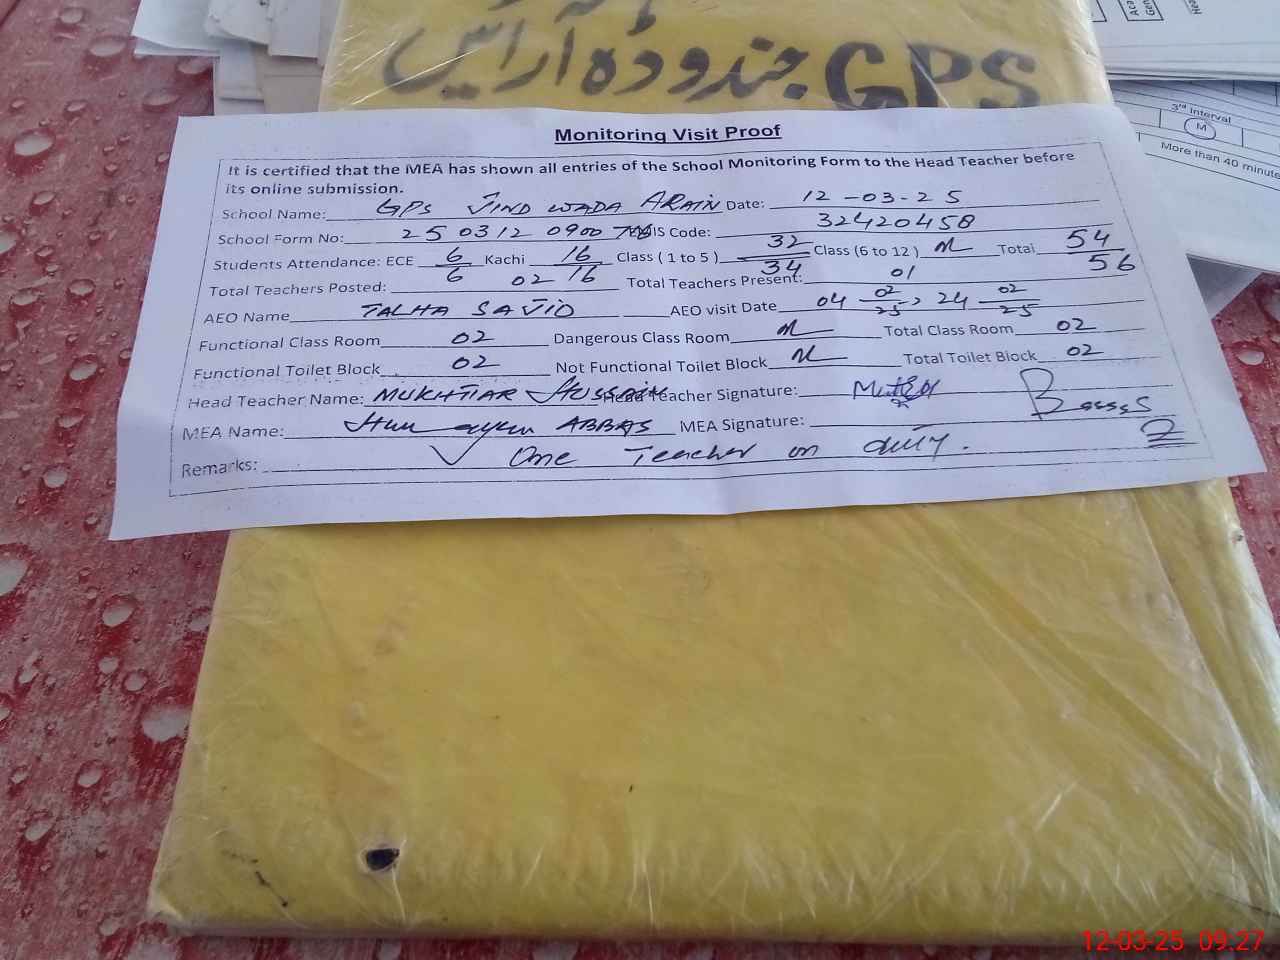 جندوده آرائیں GPS
Monitoring Visit Proof
It is certified that the MEA has shown all entries of the School Monitoring Form to the Head Teacher before
its online submission.
School Name: GPS JIND WADA ARAIN Date: 12-03-25
School Form No: 250312 0900 Code: 32420458
Students Attendance: ECE 6/6 Kachi 16/16 Class (1 to 5) 32/34 Class (6 to 12) Total 54/56
Total Teachers Posted: 02 Total Teachers Present: 01
AEO Name TALHA SAJID AEO visit Date 04 02/25, 24 02/25
Functional Class Room 02 Dangerous Class Room Total Class Room 02
Functional Toilet Block 02 Not Functional Toilet Block Total Toilet Block 02
Head Teacher Name: MUKHTIAR HUSSAIN Head Teacher Signature:
MEA Name: ABBAS MEA Signature:
Remarks: One Teacher on duty.
3rd Interval
M
More than 40 minute
12-03-25 09:27